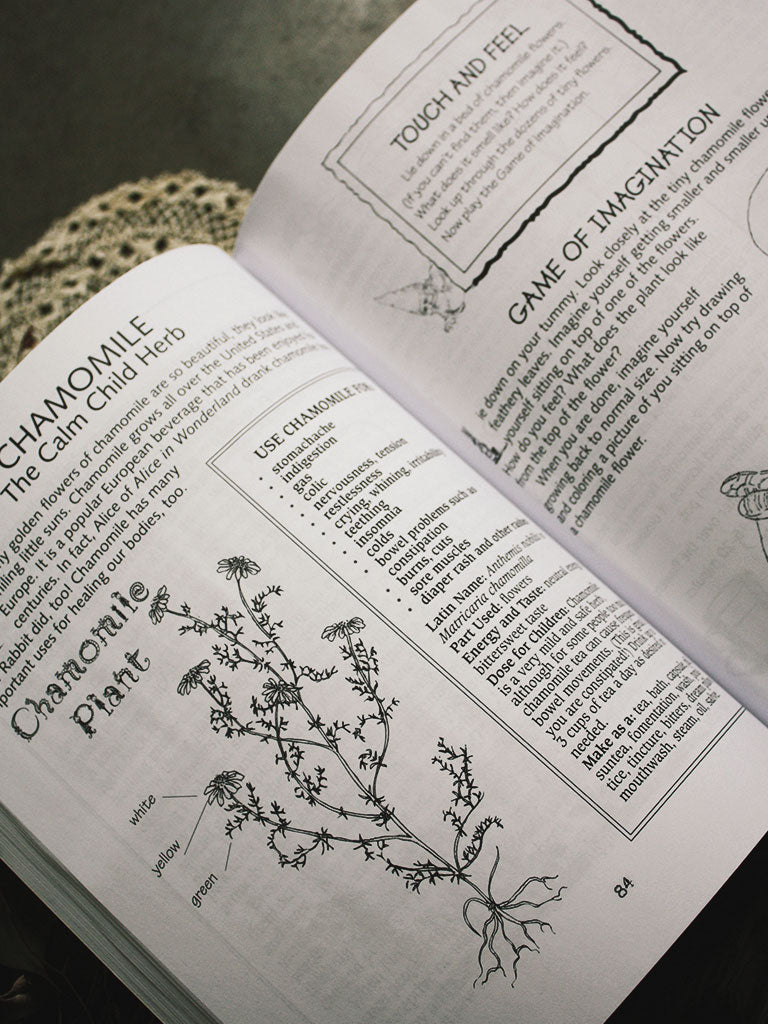 CHAMOMILE
The Calm Child Herb
golden flowers of chamomile are so beautiful, they look like
little suns. Chamomile grows all over the United States and
Europe. It is a popular European beverage that has been enjoyed
centuries. In fact, Alice of Alice in Wonderland drank chamomile
Rabbit did, too! Chamomile has many
portant uses for healing our bodies, too.
Chamomile
Plant
white
yellow
green
USE CHAMOMILE FOR
• stomachache
• indigestion
• gas
• colic
• nervousness, tension
• restlessness
• crying, whining, irritability
• teething
• insomnia
• colds
• bowel problems such as
constipation
• burns, cuts
• sore muscles
• diaper rash and other
Latin Name: Anthemis
Matricaria chamomilla
Part Used: flowers
Energy and Taste: neutral
bittersweet taste
Dose for Children: Chamomile
is a very mild and safe herb
although for some people
chamomile tea can cause
bowel movements. This is
you are constipated! Drink
3 cups of tea a day as
needed.
Make as a: tea, bath,
suntea, fomentation, wash,
tice, tincture, bitters,
mouthwash, steam, oil,
84
TOUCH AND FEEL
Lie down in a bed of chamomile flowers.
(If you can't find them, then imagine it.)
What does it smell like? How does it feel?
Look up through the dozens of tiny flowers.
Now play the Game of Imagination.
GAME OF IMAGINATION
ie down on your tummy. Look closely at the tiny chamomile
feathery leaves. Imagine yourself getting smaller and smaller
yourself sitting on top of one of the flowers.
How do you feel? What does the plant look like
from the top of the flower?
When you are done, imagine yourself
growing back to normal size. Now try drawing
and coloring a picture of you sitting on top of
a chamomile flower.